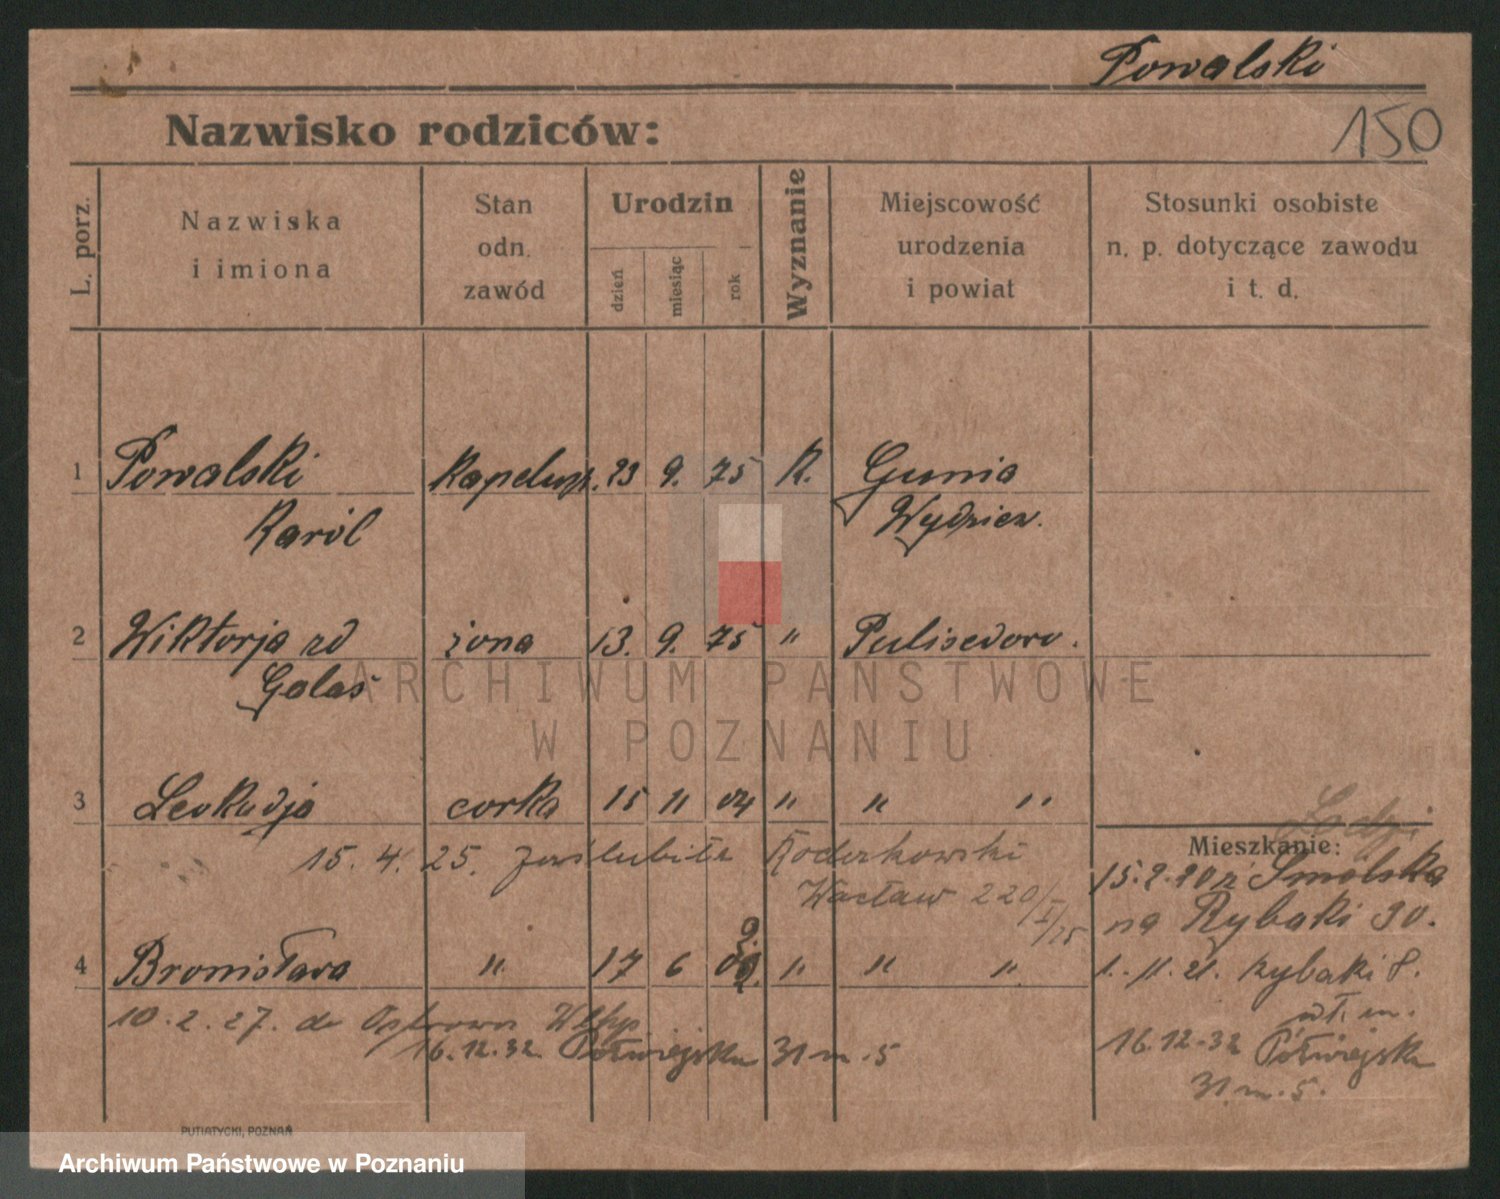 Powalski
150
Nazwisko rodziców:
L. porz.
Nazwiska
i imiona
Stan
odn.
zawód
Urodzin
dzień
miesiąc
rok
Wyznanie
Miejscowość
urodzenia
i powiat
Stosunki osobiste
n. p. dotyczące zawodu
i t. d.
1 Powalski kapelusz. 23 9. 75 K. Gunia
Karól Wydzierz.
2 Wiktorja zd żona 13. 9. 75 " 
Galas
ARCHIWUM PAŃSTWOWE
W POZNANIU
3 Leokadja corka 15 11 04 " " "
15. 4. 25. zaślubiła
Wacław 220/I/25
4 Bronisława " 17 6 " " "
10. 2. 27. do Ostrowa Wlkp.
16.12.32 Półwiejska 31 m. 5
Łodzi
Mieszkanie:
z Smolska
na Rybaki 30.
1. 11. 21. Rybaki 8.
wł. m.
16.12.32 Półwiejska
31 m. 5.
PUTIATYCKI, POZNAŃ
Archiwum Państwowe w Poznaniu